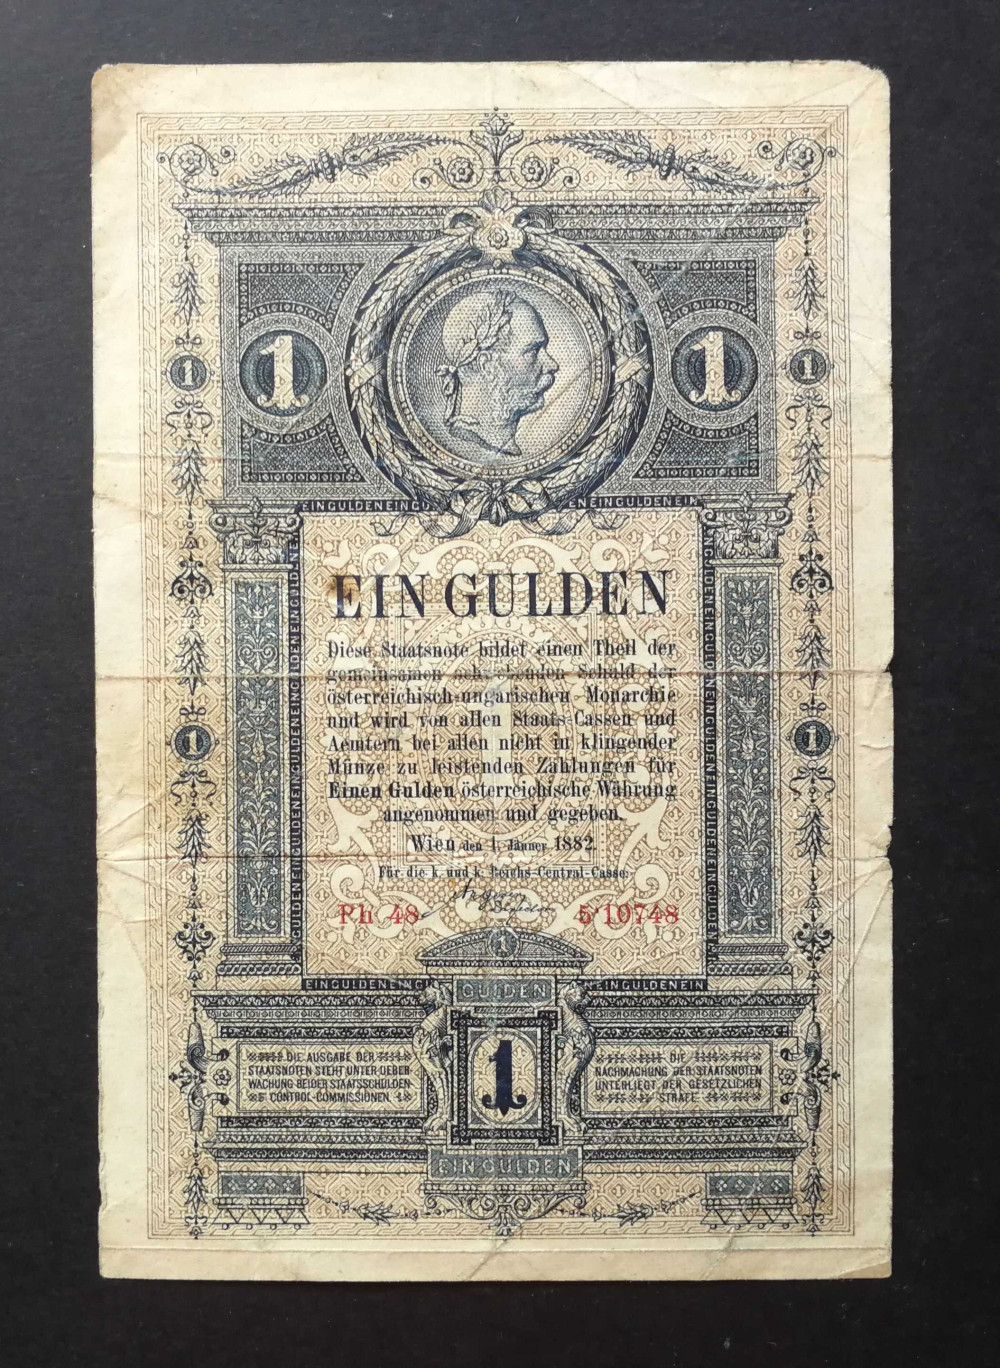 1 1
1 1
EINGULDENEINGU ENEINGULDENEIN
EIN GULDEN
Diese Staatsnote bildet einen Theil der
gemeinsamen schwebenden Schuld der
österreichisch-ungarischen Monarchie
und wird von allen Staats-Cassen und
Aemtern bei allen nicht in klingender
Münze zu leistenden Zahlungen für
Einen Gulden österreichische Währung
angenommen und gegeben.
1 1
Wien den 1. Jänner 1882.
Für die k. und k. Reichs-Central-Casse:
Ph 48 510748
1
EINGULDENEIN EINGULDENEIN
GULDEN
1
DIE AUSGABE DER
STAATSNOTEN STEHT UNTER UEBER
WACHUNG BEIDER STAATSSCHULDEN
CONTROL-COMMISSIONEN.
DIE
NACHMACHUNG DER STAATSNOTEN
UNTERLIEGT DER GESETZLICHEN
STRAFE
EIN GULDEN